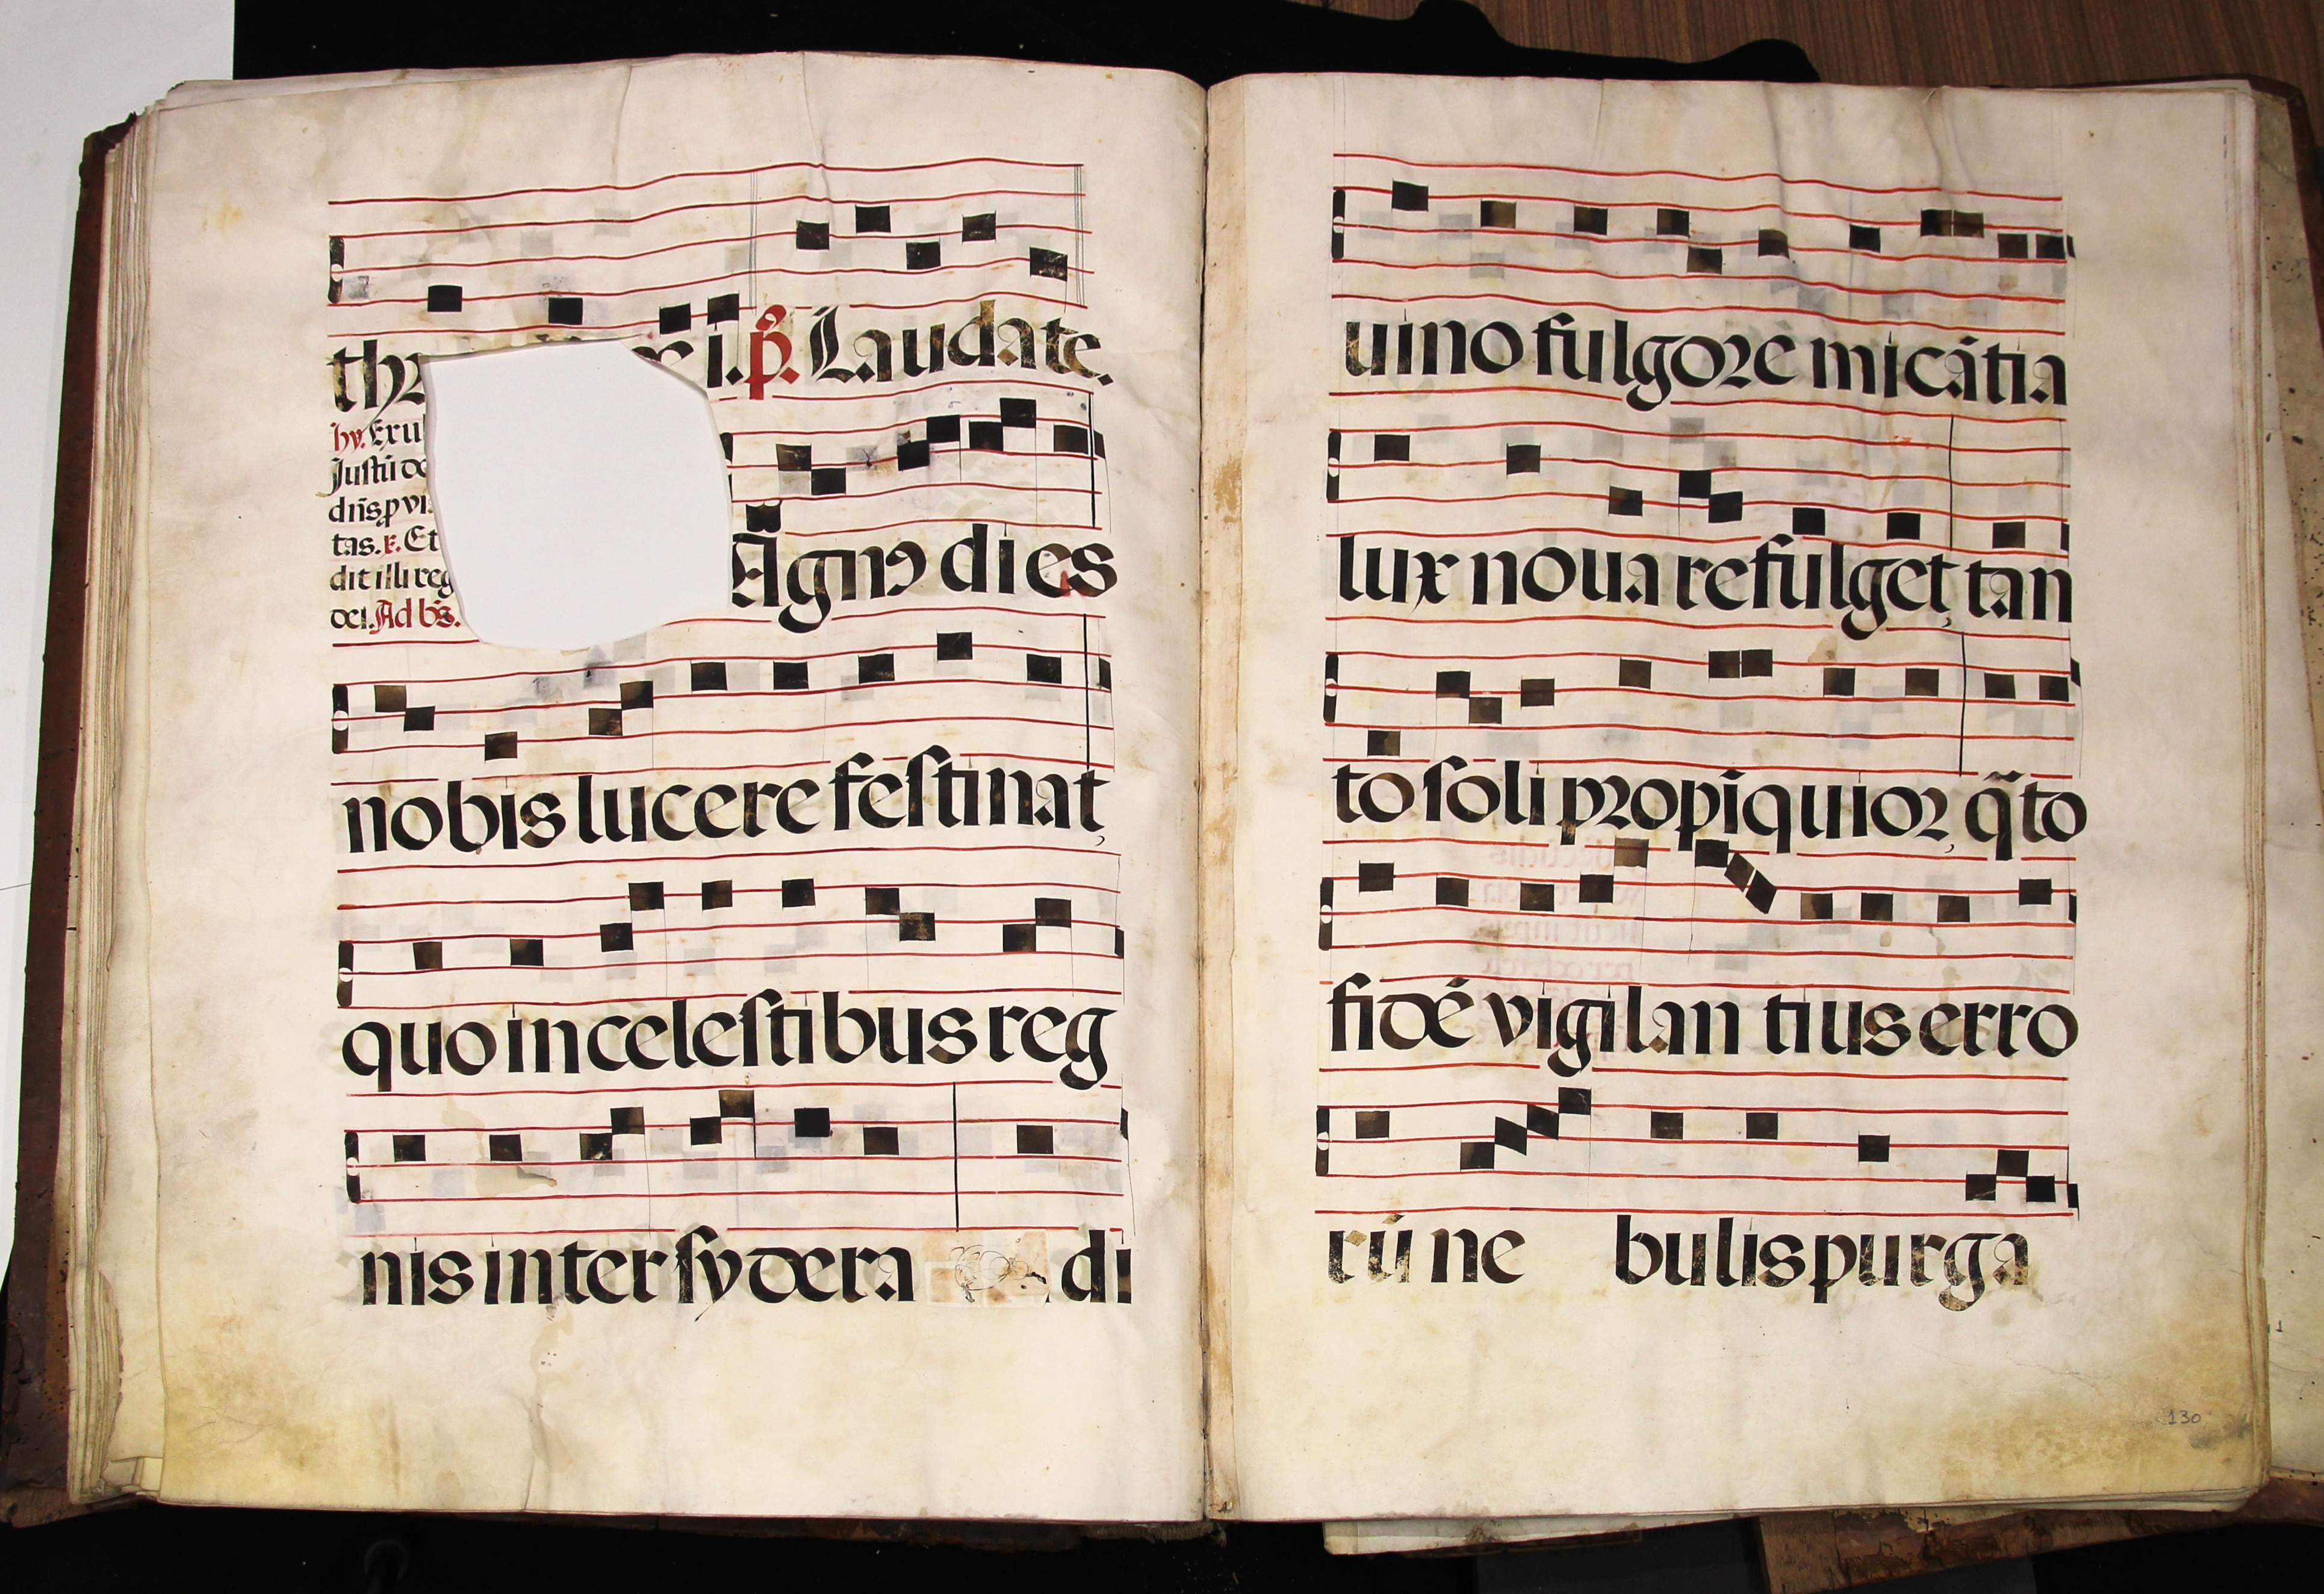 i. p̃. Laudate.
hy. Exul
Justũ de
dñs p vi
tas. r. Et
dit illi reg
dei. Ad bs̃.
Agnꝰ dies
nobis lucere festinat,
quo in celestibus reg
nis inter sydera di
uino fulgore micãtia
lux noua refulget, tan
to soli propĩquior, q̃to
fidẽ vigilan tius erro
rũ ne bulis purga
130